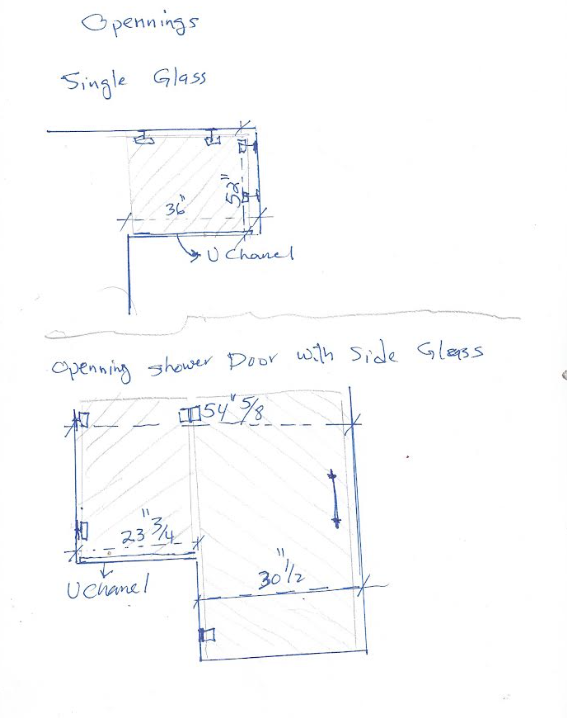 Opennings
Single Glass
52"
36"
U Chanel
Openning shower Door with Side Glass
54" 5/8
23" 3/4
30" 1/2
U Chanel